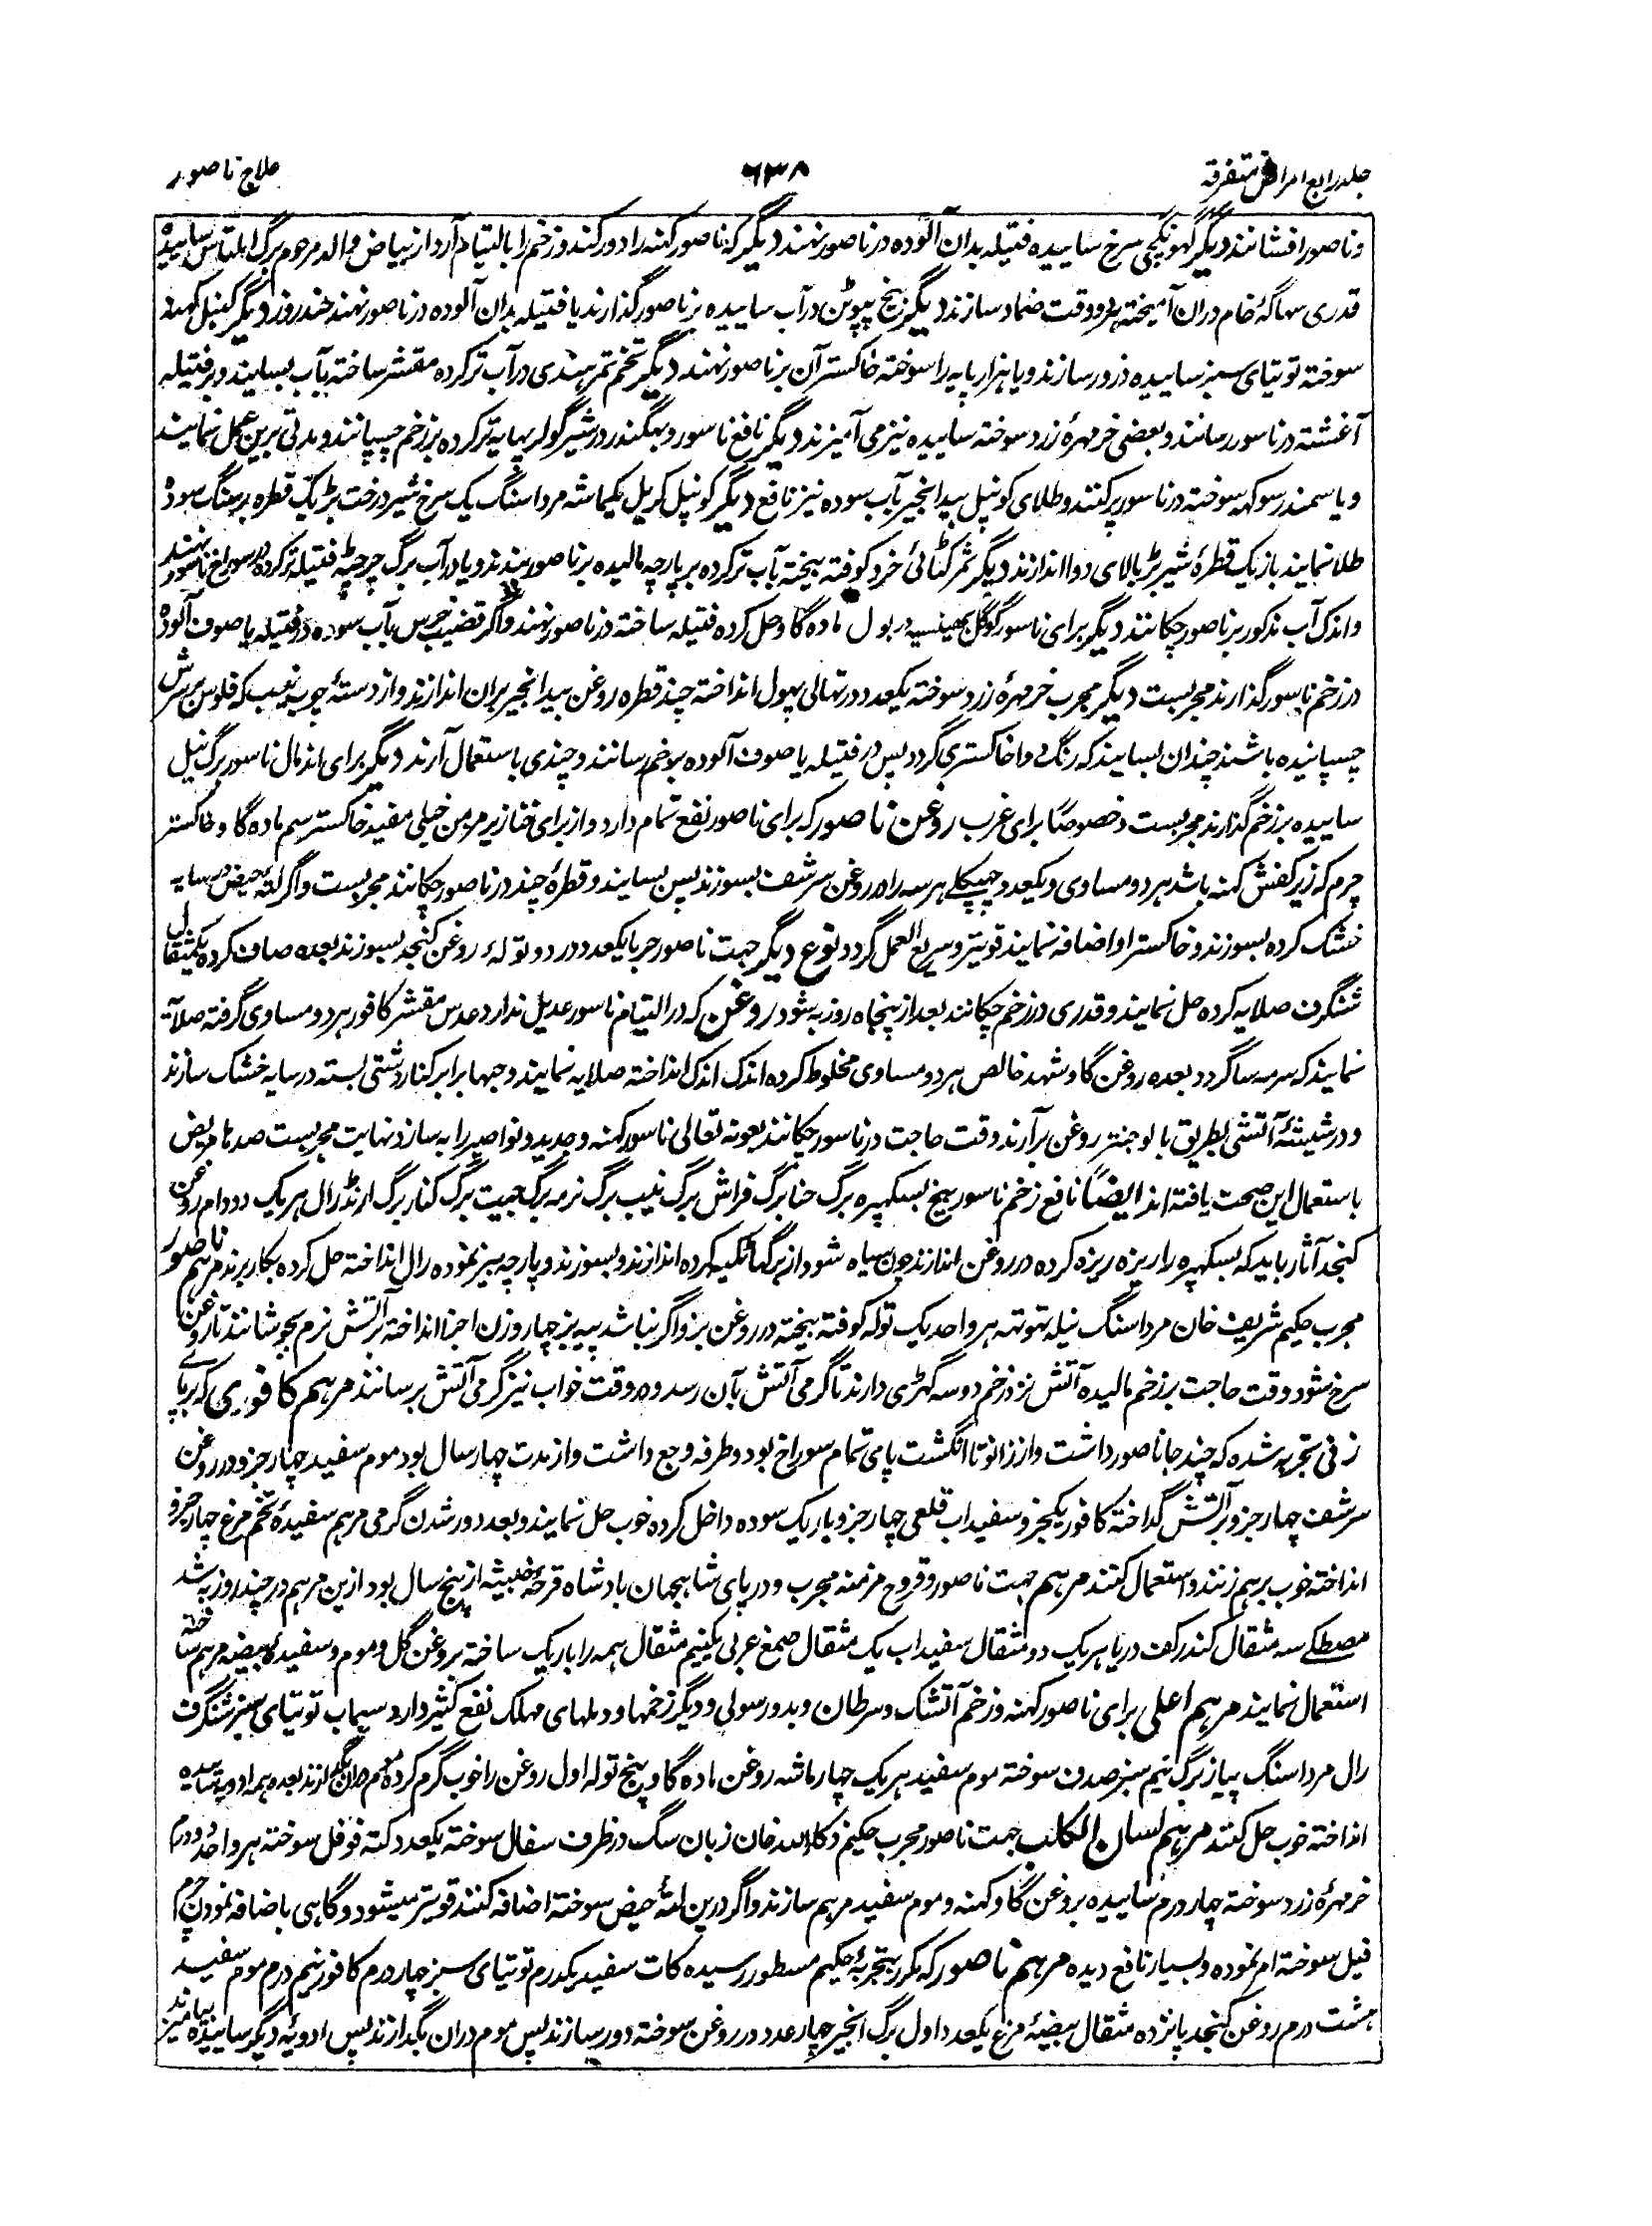 جلد رابع امراض متفرقه
۶۳۸
علاج ناصور
و ناصور افشانند دیگر گهونگچی سرخ ساییده فتیله بدان آلوده در ناصور نهند دیگر که ناصور کهنه را دور کند و زخم را بالتیام آرد از بیاض والد مرحوم برگ املتاس ساییده
قدری سهاگهٔ خام دران آمیخته هر دو وقت ضماد سازند دیگر بیخ در آب ساییده بر ناصور گذارند یا فتیله بدان آلوده در ناصور نهند چند روز دیگر کنبل کهنه
سوخته توتیای سبز ساییده ذرور سازند و یا هزار پایه را سوخته خاکستر آن بر ناصور نهند دیگر تخم تمر هندی در آب تر کرده مقشر ساخته بآب بسایند و بر فتیله
آغشته در ناسور رسانند و بعضی خرمهرهٔ زرد سوخته ساییده نیز می آمیزند دیگر نافع ناسور و بهگندر در شیر گولر پهایه تر کرده بر زخم چسپانند و مدتی برین عمل نمایند
و یا سمندر سوکهه سوخته در ناسور پر کنند و طلای کونپل بیدانجیر بآب سوده نیز نافع دیگر کونپل کریل یکماشه مرداسنگ یک سرخ شیر درخت بڑ یک قطره بر سنگ سوده
طلا نمایند باز یک قطرهٔ شیر بڑ بالای دوا اندازند دیگر ثمر کٹائی خرد کوفته بیخته بآب تر کرده بر پارچه مالیده بر ناصور بندند و یا در آب برگ چرچٹه فتیله تر کرده در سوراخ ناسور نهند
و اندک آب مذکور بر ناصور چکانند دیگر برای ناسور گوگل بهینسیه در بول ماده گاو حل کرده فتیله ساخته در ناصور نهند و اگر قضیب خرس بآب سوده در فتیله یا صوف آلوده
در زخم ناسور گذارند مجربست دیگر مجرب خرمهرهٔ زرد سوخته یکعدد در تهالی پهول انداخته چند قطره روغن بیدانجیر بران اندازند و از دستهٔ چوب نیب که فلوس بر سرش
چسپانیده باشند چندان بسایند که رنگ دوا خاکستری گردد پس در فتیله یا صوف آلوده بزخم رسانند و چندی باستعمال آرند دیگر برای اندمال ناسور برگ نیل
ساییده بر زخم گذارند مجربست و خصوصًا برای غرب روغن ناصور که برای ناصور نفع تمام دارد و از برای خنازیر مزمن خیلی مفید خاکستر سم ماده گاو و خاکستر
چرم که زیر کفش کهنه باشد هر دو مساوی و یکعدد چهپکلی هر سه را در روغن سرشف بسوزند پس بسایند و قطرهٔ چند در ناصور چکانند مجربست و اگر لتهٔ حیض در سایه
خشک کرده بسوزند و خاکستر او اضافه نمایند قویتر و سریع العمل گردد نوع دیگر جهت ناصور حربا یکعدد در دو توله روغن کنجد بسوزند بعده صاف کرده یکمثقال
شنگرف صلایه کرده حل نمایند و قدری در زخم چکانند بعد از پنجاه روز به شود روغن که در التیام ناسور عدیل ندارد عدس مقشر کافور هر دو مساوی گرفته صلایه
نمایند که سرمه سا گردد بعده روغن گاو شهد خالص هر دو مساوی مخلوط کرده اندک اندک انداخته صلایه نمایند و حبها برابر کنار دشتی بسته در سایه خشک سازند
و در شیشهٔ آتشی بطریق بالوجنتر روغن برآرند وقت حاجت در ناسور چکانند بعونه تعالی ناسور کهنه و جدید و نواصیر را به سازد نهایت مجربست صدها مریض
باستعمال این صحت یافته اند ایضًا نافع زخم ناسور بیخ بسکهپره برگ حنا برگ فراش برگ نیب برگ نرمه برگ برگ کنار برگ ارنڈ رال هر یک دو دام روغن
کنجد آثار باید که بسکهپره را ریزه ریزه کرده در روغن اندازند چون سیاه شود از برگها ٹکیه کرده اندازند و بسوزند و پارچه بیز نموده رال انداخته حل کرده بکار برند مرهم ناصور
مجرب حکیم شریف خان مرداسنگ نیله تهوتهه هر واحد یک توله کوفته بیخته در روغن بز و اگر نباشد پیه بز چهار وزن اجزا انداخته بر آتش نرم بجوشانند تا روغن
سرخ شود وقت حاجت بر زخم مالیده آتش نزد زخم دو سه گهڑی دارند تا گرمی آتش بآن رسد و در وقت خواب نیز گرمی آتش برسانند مرهم کافوری که بر پای
زنی تجربه شده که چند جا ناصور داشت و از زانو تا انگشت پای تمام سوراخ بود و طرفه وجع داشت و از مدت چهار سال بود موم سفید چهار جزو در روغن
سرشف چهار جزو بر آتش گداخته کافور یکجزو سفیداب قلعی چهار جزو باریک سوده داخل کرده خوب حل نمایند و بعد دور شدن گرمی مرهم سفیدهٔ تخم مرغ چهار جزو
انداخته خوب برهم زنند و استعمال کنند مرهم جهت ناصور و قروح مزمنه مجرب و در پای شاهجهان بادشاه قرحهٔ خبیثه از پنج سال بود ازین مرهم در چند روز به شد
مصطکے سه مثقال کندر کف دریا هر یک دو مثقال سفیداب یک مثقال صمغ عربی یکنیم مثقال همه را باریک ساخته بروغن گل و موم و سفیدهٔ بیضه مرهم ساخته
استعمال نمایند مرهم اعلی برای ناصور کهنه و زخم آتشک و سرطان و بدور سولی و دیگر زخمها و دملهای مهلک نفع کثیر دارد سیماب توتیای سبز شنگرف
رال مرداسنگ پیاز برگ نیم سبز صدف سوخته موم سفید هر یک چهار ماشه روغن ماده گاو پنج توله اول روغن را خوب گرم کرده موم دران بگدازند بعده همه ادویه ساییده
انداخته خوب حل کنند مرهم لسان الکلب جهت ناصور مجرب حکیم ذکاءالله خان زبان سگ در ظرف سفال سوخته یکعدد کته فوفل سوخته هر واحد دو درم
خرمهرهٔ زرد سوخته چهار درم ساییده بروغن گاو کهنه و موم سفید مرهم سازند و اگر درین لتهٔ حیض سوخته اضافه کنند قویتر میشود و گاهی باضافه نمودن چرم
فیل سوخته ام نموده و بسیار نافع دیده مرهم ناصور که مکرر بتجربهٔ حکیم مسطور رسیده کات سفید یکدرم توتیای سبز چهار درم کافور نیم درم موم سفید
هشت درم روغن کنجد پانزده مثقال بیضهٔ مرغ یکعدد اول برگ انجیر چهار عدد در روغن سوخته دور سازند پس موم دران بگدازند پس ادویهٔ دیگر ساییده بیامیزند